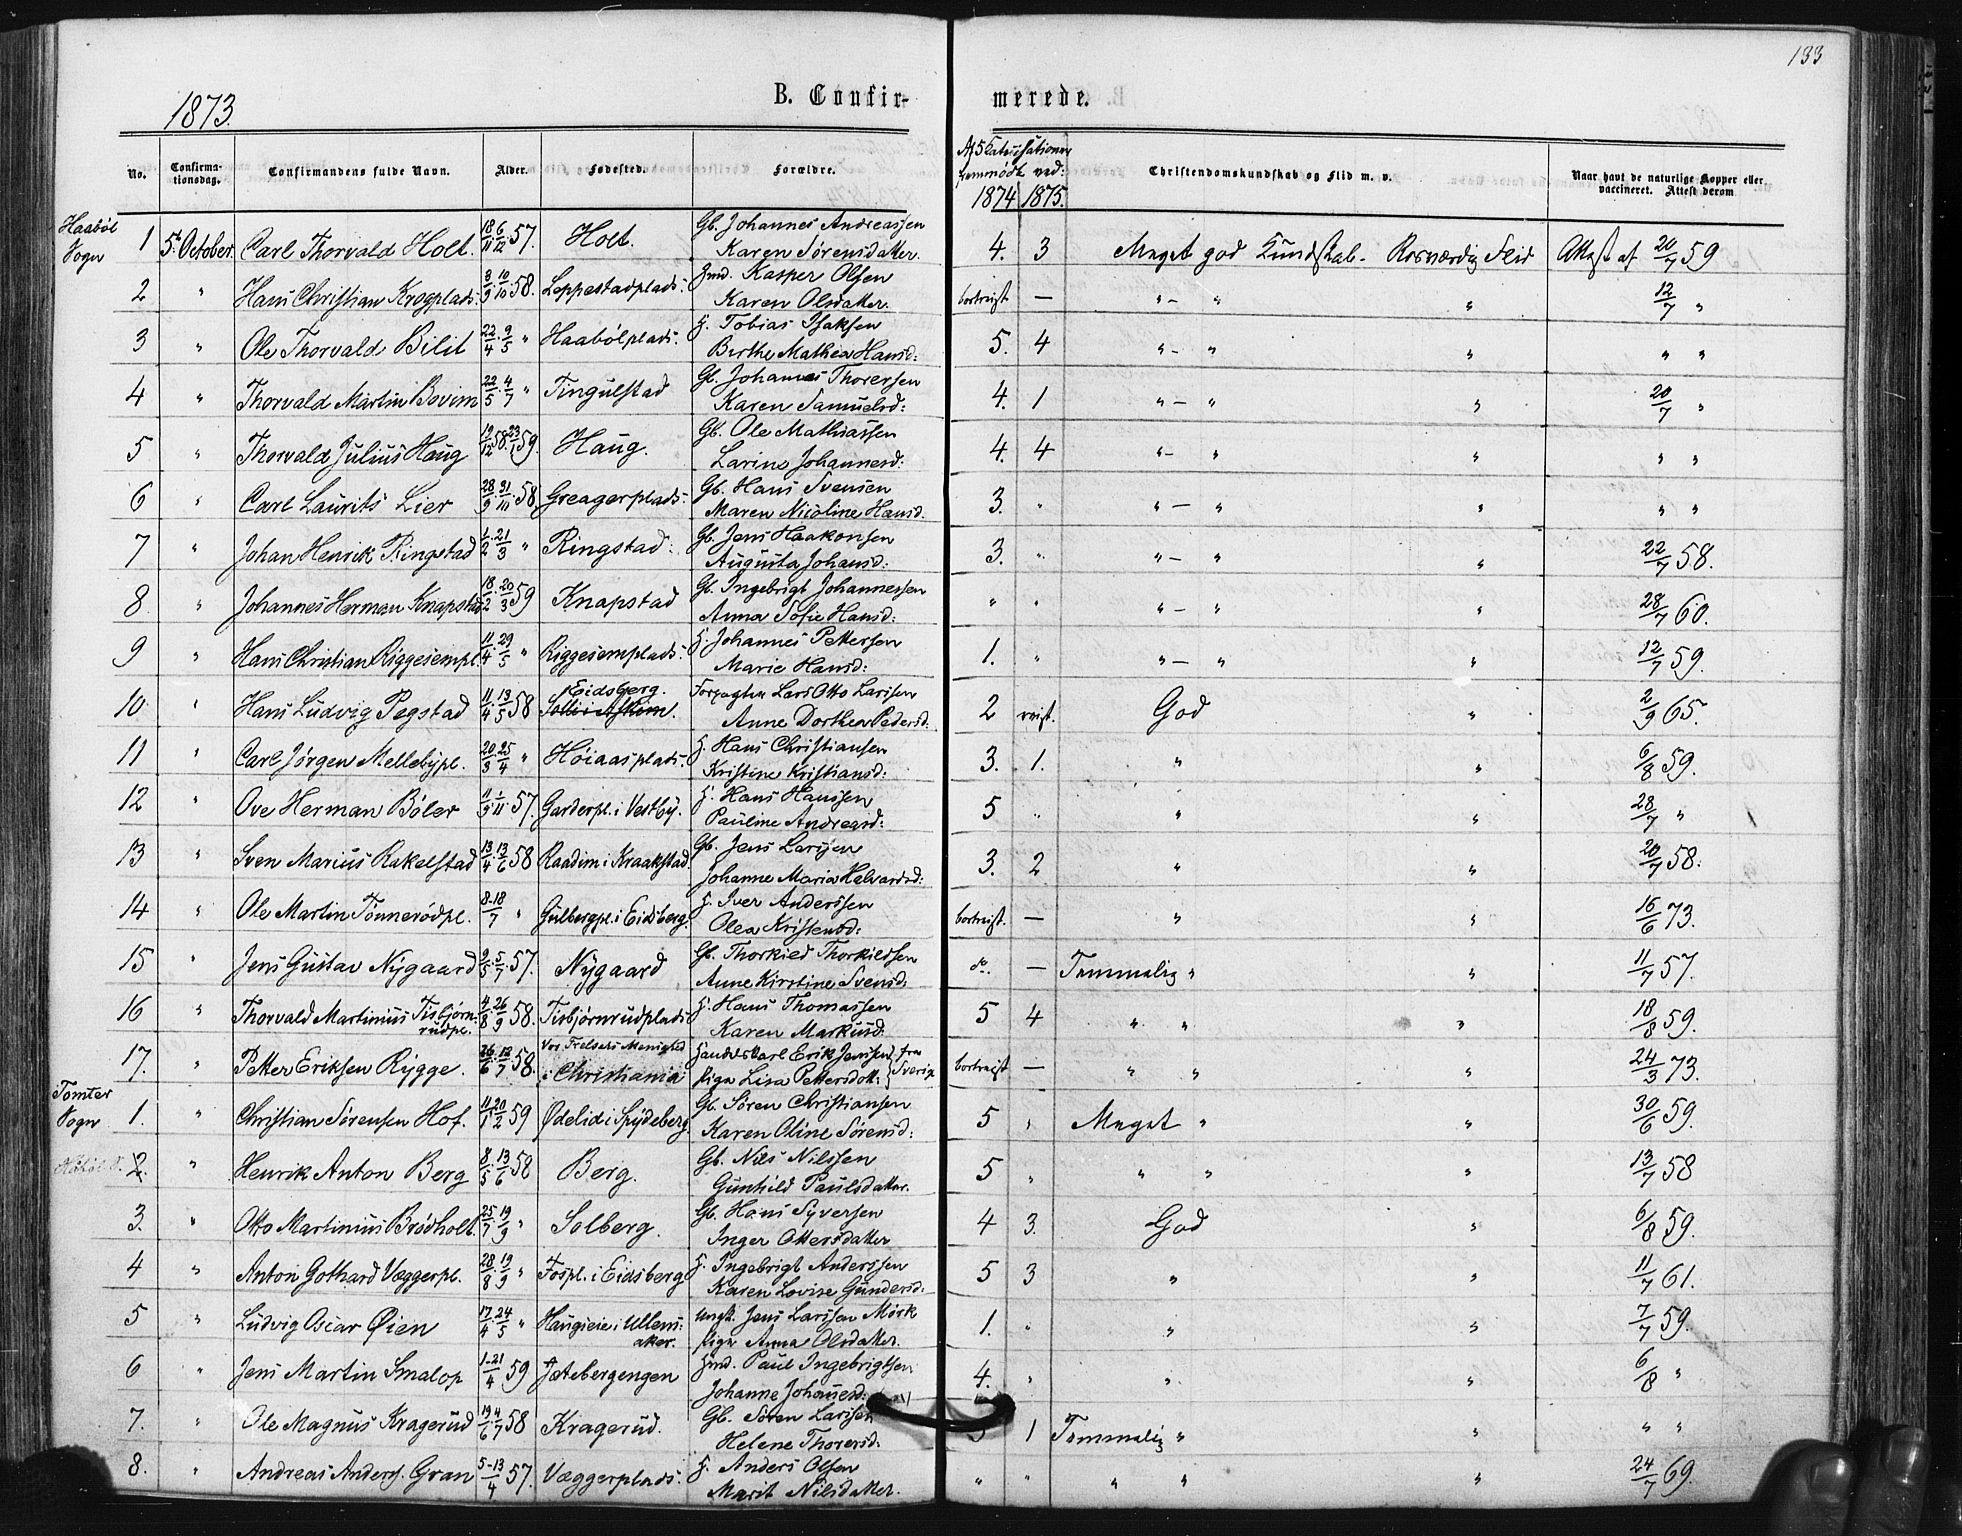 133
1873.
B. Confir-
merede.
No.
Confirma-
tionsdag.
Confirmandens fulde Navn.
Alder.
Fødested.
Forældre.
Af 5 Catechisationer
fremmødt ved:
1874 1875.
Christendomskundskab og Flid m. v.
Naar havt de naturlige Kopper eller
vaccineret. Attest derom
Haabøl
Sogn
1 5te October. Carl Thorvald Holt. 18/11 6/12 57. Holt. Gb. Johannes Andreassen
Karen Sørensdatter. 4. 3 Meget god Kundskab. Rosværdig Flid Attest af 20/7 59
2 " Hans Christian Kragplads: 3/9 10/10 58. Loppestadplads: Hmd. Kasper Olsen
Karen Olsdatter. bortreist — " — " " 12/7 "
3 " Ole Thorvald Bilit 22/4 9/5 " Haabølplads: H. Tobias Isaksen
Birthe Mathea Hansd: 5. 4 " — " " " "
4 " Thorvald Martin Bovim 22/5 4/7 " Tingulstad Gb. Johannes Thorersen
Karen Samuelsd: 4. 1 " — " " 20/7 "
5 " Thorvald Julius Haug 19/12 58. 23/1 59. Haug. Gb. Ole Mathiassen
Larine Johannesd: 4. 4 " — " " " "
6 " Carl Laurits Lier 28/9 31/10 58. Greagerplads: Gb. Hans Svensen
Maren Nicoline Hansd. 3. " " — " " " "
7 " Johan Henrik Ringstad 1/2 21/3 " Ringstad: Gb. Jens Haakonsen
Augusta Johansd: 3. " " — " " 22/7 58.
8. " Johannes Herman Knapstad 18/2 20/3 59 Knapstad Gb. Ingebrigt Johannessen
Anna Sofie Hansd: " " " — " " 28/7 60.
9 " Hans Christian Riggesempl. 11/4 29/5 " Riggesemplads: H. Johannes Pettersen
Marie Hansd: 1. " " — " " 12/7 59.
10. " Hans Ludvig Pegstad 11/4 13/5 58 Eidsberg.
Solli i Askim. Forpagter Lars Otto Larssen
Anne Dorthea Pedersd: 2 reist. God " 2/9 65.
11 " Carl Jørgen Mellebypl. 20/3 25/4 " Høiaasplads: H. Hans Christiansen
Kristine Kristiansd: 3. 1. " " 6/8 59.
12 " Ove Herman Bøler 11/9 1/11 57. Garderpl. i Vestby. H. Hans Hanssen
Pauline Andreasd: 5 " " " 28/7 "
13 " Sven Marius Rakelstad 13/4 13/6 58 Raadim i Kraakstad. Gb. Jens Larssen
Johanne Maria Halvardsd: 3. 2 " " 20/7 58.
14 " Ole Martin Tønnerødpl. 8-18/7 " Gulbergpl. i Eidsberg. H. Iver Anderssen
Olea Kristensd: bortreist. — " " 16/6 73.
15 " Jens Gustav Nygaard 2/5 5/7 57. Nygaard Gb. Thorkild Thorkildsen
Anne Kirstine Svensd: do. — Temmelig " " 11/7 57.
16 " Thorvald Martinius Tisbjørn-
rudpl. 4/8 26/9 58. Tisbjørnrudplads: H. Hans Thomassen
Karen Markusd: 5 4 " " " 18/8 59.
17. " Petter Eriksen Rygge. 26/6 12/7 58. Vor Frelsers Menighed
i Christiania Handelskarl Erik Jansen fra
Pige Lisa Pettersdott: Sverig bortreist — " " " 24/3 73.
Tomter
Sogn
1. " Christian Sørensen Hof. 11/1 20/2 59 Ødelid i Spydeberg Gb. Søren Christiansen
Karen Oline Sørensd: 5 " Meget " " 30/6 59.
2. " Henrik Anton Berg 8/5 13/6 58 Berg. Gb. Nils Nilssen
Gunhild Paulsdatter. 5 " " " " 13/7 58
3. " Otto Martinius Brødholt. 25/7 19/9 " Solberg. Gb. Hans Syversen
Inger Ottersdatter 4 3. God " 6/8 59.
4 " Anton Gothard Væggerpl. 28/8 19/9 " Fospl. i Eidsberg H. Ingebrigt Anderssen
Karen Lovise Gundersd: 5 3 " " 11/7 61.
5 " Ludvig Oscar Øien 17/4 24/5 " Haugieie i Ullens-
aker. Ungk. Jens Larssen Mørk
Pige Anna Olsdatter. 1. " " " 7/7 59.
6 " Jens Martin Smalop 1-21/4 59 Hmd. Paul Ingebrigtsen
Johanne Johanesd: 4. " " " 6/8 "
7. " Ole Magnus Kragerud 19/6 4/7 58 Kragerud. Gb. Søren Larssen
Helene Thorersd: 1 Temmelig " " " "
8. " Andreas Anders. Gran 5-13/4 57. Væggerplads: H. Anders Olsen
Marit Nilsdatter. " " " " " 24/7 69.